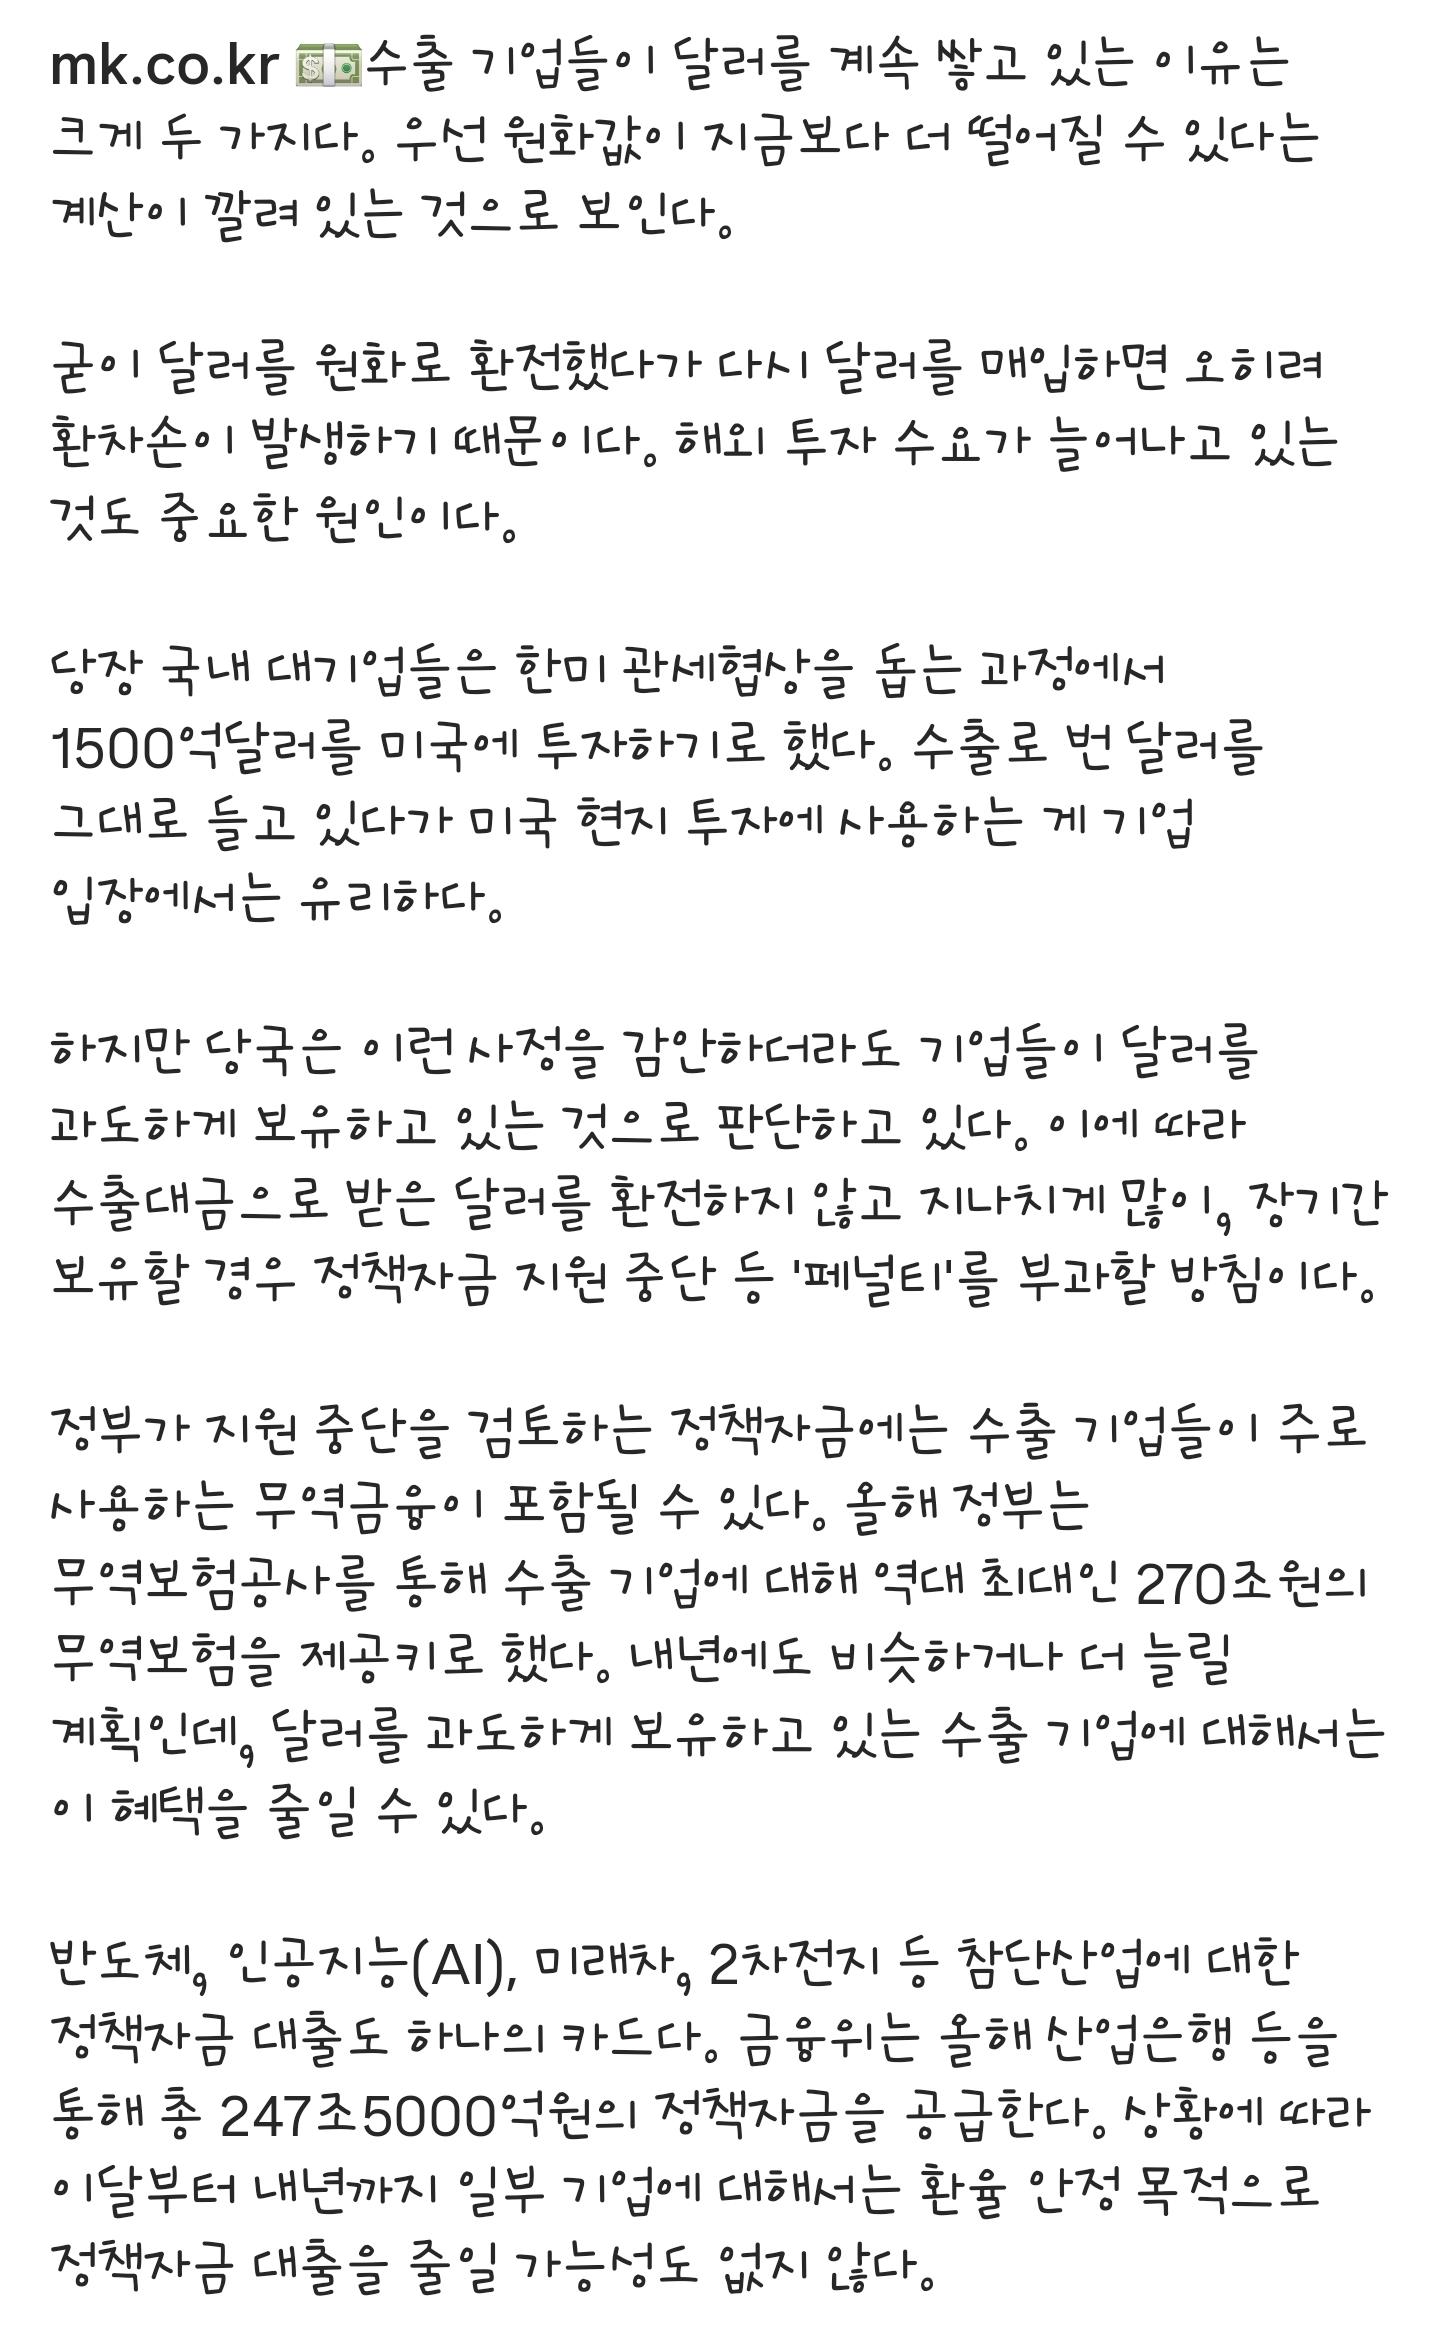 mk.co.kr 💵수출 기업들이 달러를 계속 쌓고 있는 이유는
크게 두 가지다. 우선 원화값이 지금보다 더 떨어질 수 있다는
계산이 깔려 있는 것으로 보인다.
굳이 달러를 원화로 환전했다가 다시 달러를 매입하면 오히려
환차손이 발생하기 때문이다. 해외 투자 수요가 늘어나고 있는
것도 중요한 원인이다.
당장 국내 대기업들은 한미 관세협상을 돕는 과정에서
1500억달러를 미국에 투자하기로 했다. 수출로 번 달러를
그대로 들고 있다가 미국 현지 투자에 사용하는 게 기업
입장에서는 유리하다.
하지만 당국은 이런 사정을 감안하더라도 기업들이 달러를
과도하게 보유하고 있는 것으로 판단하고 있다. 이에 따라
수출대금으로 받은 달러를 환전하지 않고 지나치게 많이, 장기간
보유할 경우 정책자금 지원 중단 등 '페널티'를 부과할 방침이다.
정부가 지원 중단을 검토하는 정책자금에는 수출 기업들이 주로
사용하는 무역금융이 포함될 수 있다. 올해 정부는
무역보험공사를 통해 수출 기업에 대해 역대 최대인 270조원의
무역보험을 제공키로 했다. 내년에도 비슷하거나 더 늘릴
계획인데, 달러를 과도하게 보유하고 있는 수출 기업에 대해서는
이 혜택을 줄일 수 있다.
반도체, 인공지능(AI), 미래차, 2차전지 등 참단산업에 대한
정책자금 대출도 하나의 카드다. 금융위는 올해 산업은행 등을
통해 총 247조5000억원의 정책자금을 공급한다. 상황에 따라
이달부터 내년까지 일부 기업에 대해서는 환율 안정 목적으로
정책자금 대출을 줄일 가능성도 없지 않다.